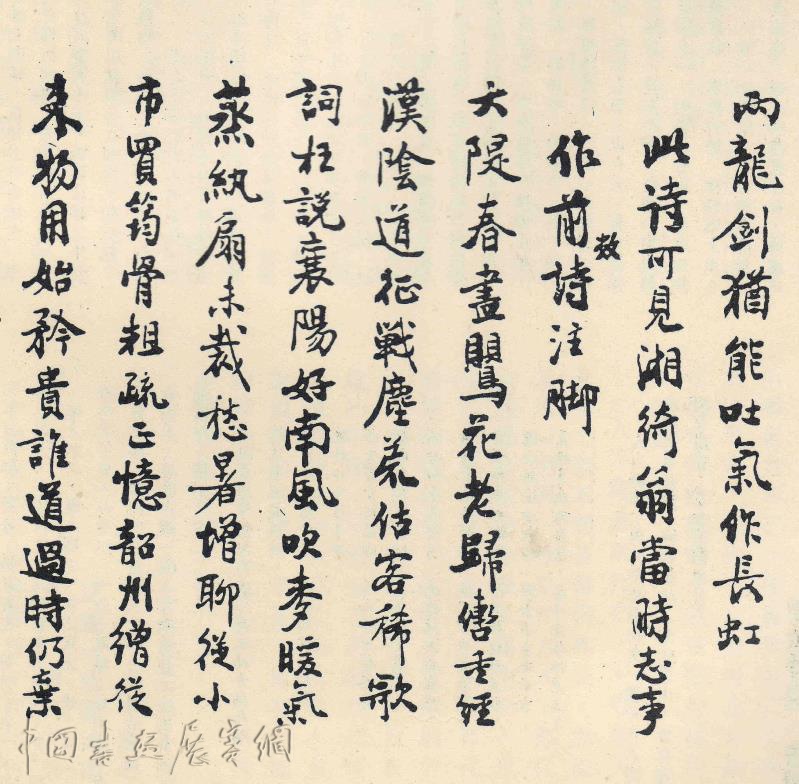 兩龍劍猶能吐氣作長虹
此诗可見湘綺翁當時志事
作前詩注脚
大隄春盡鸎花老歸轡重經
漢陰道征戰塵荒估客稀歌
詞枉説襄陽好南風吹麥暖氣
蒸紈扇未裁愁暑增聊從小
市買筠骨粗疏正憶韶州繒從
來物用始矜貴誰道過時仍棄
中国书法展賽網